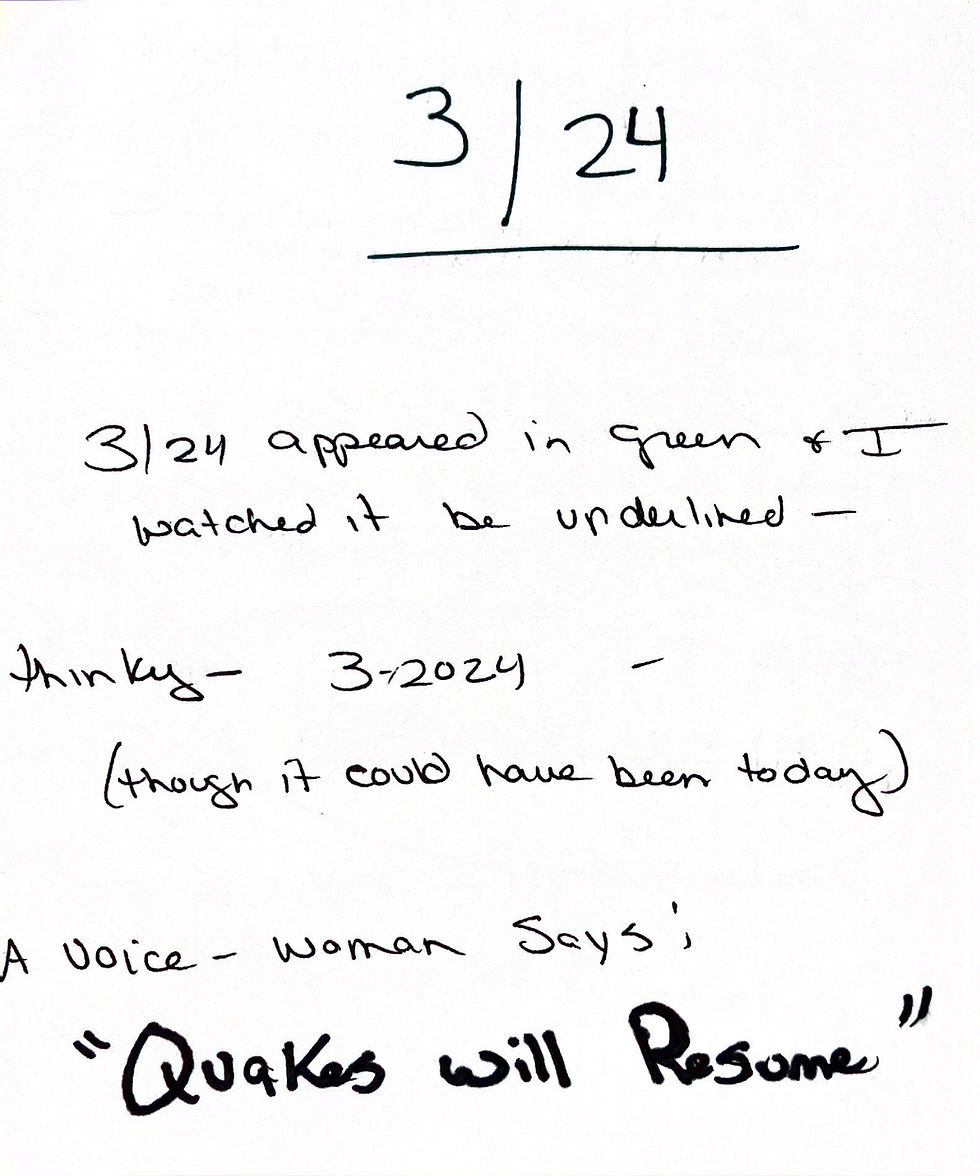 3/24
3/24 appeared in green & I
watched it be underlined —
thinky — 3-2024 —
(though it could have been today)
A voice - woman says:
"Quakes will Resume"